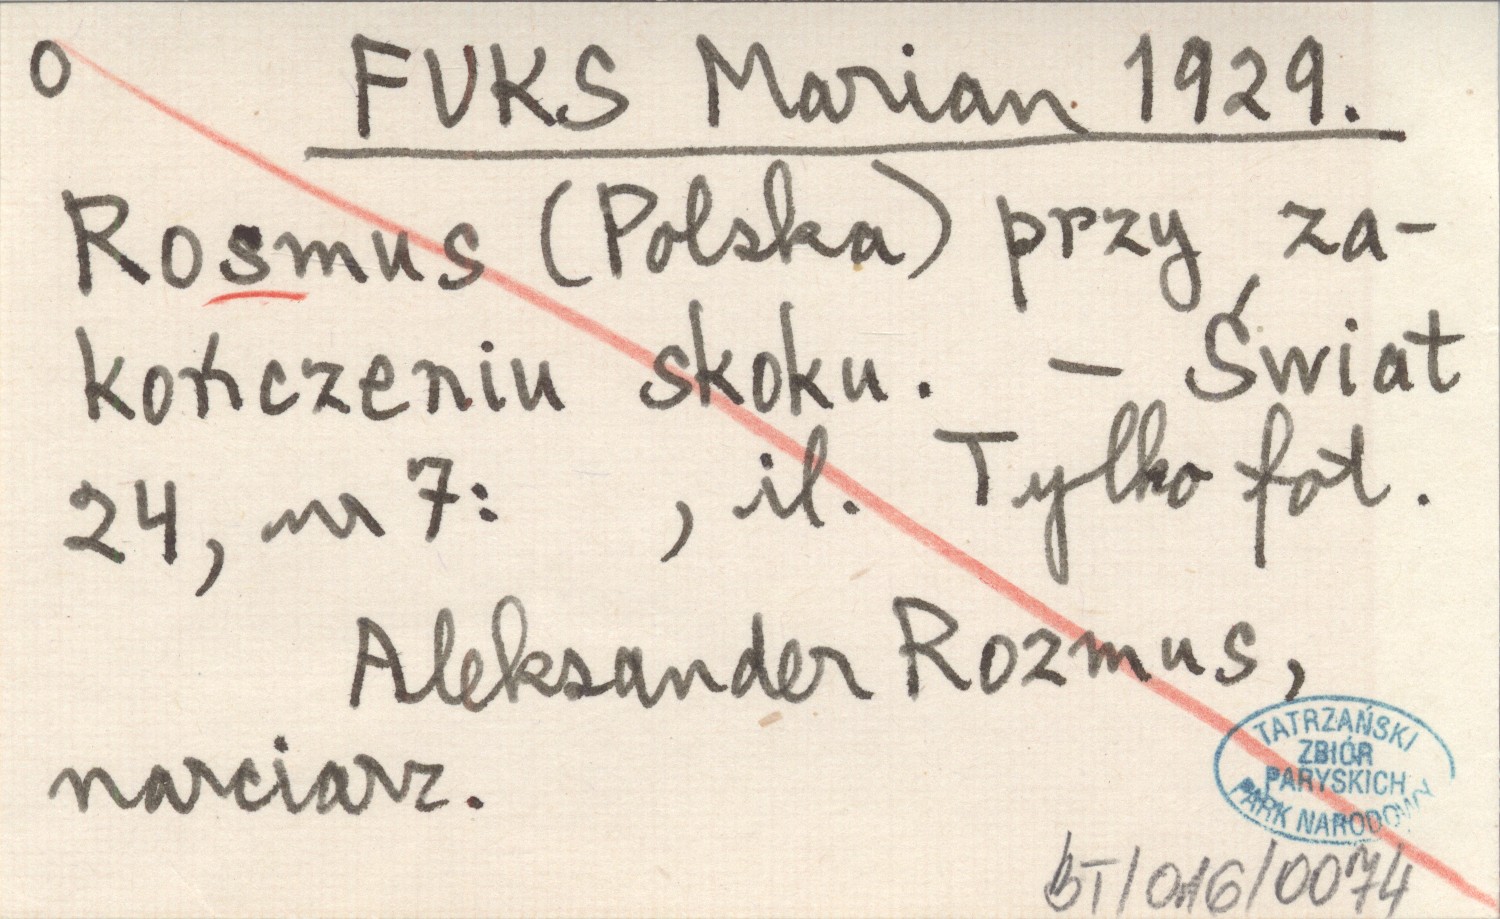 O FUKS Marian 1929.
Rosmus (Polska) przy za-
kończeniu skoku. – Świat
24, nr 7: , il. Tylko fot.
Aleksander Rozmus,
narciarz.
TATRZAŃSKI
ZBIÓR
PARYSKICH
PARK NARODOWY
BT/016/0074